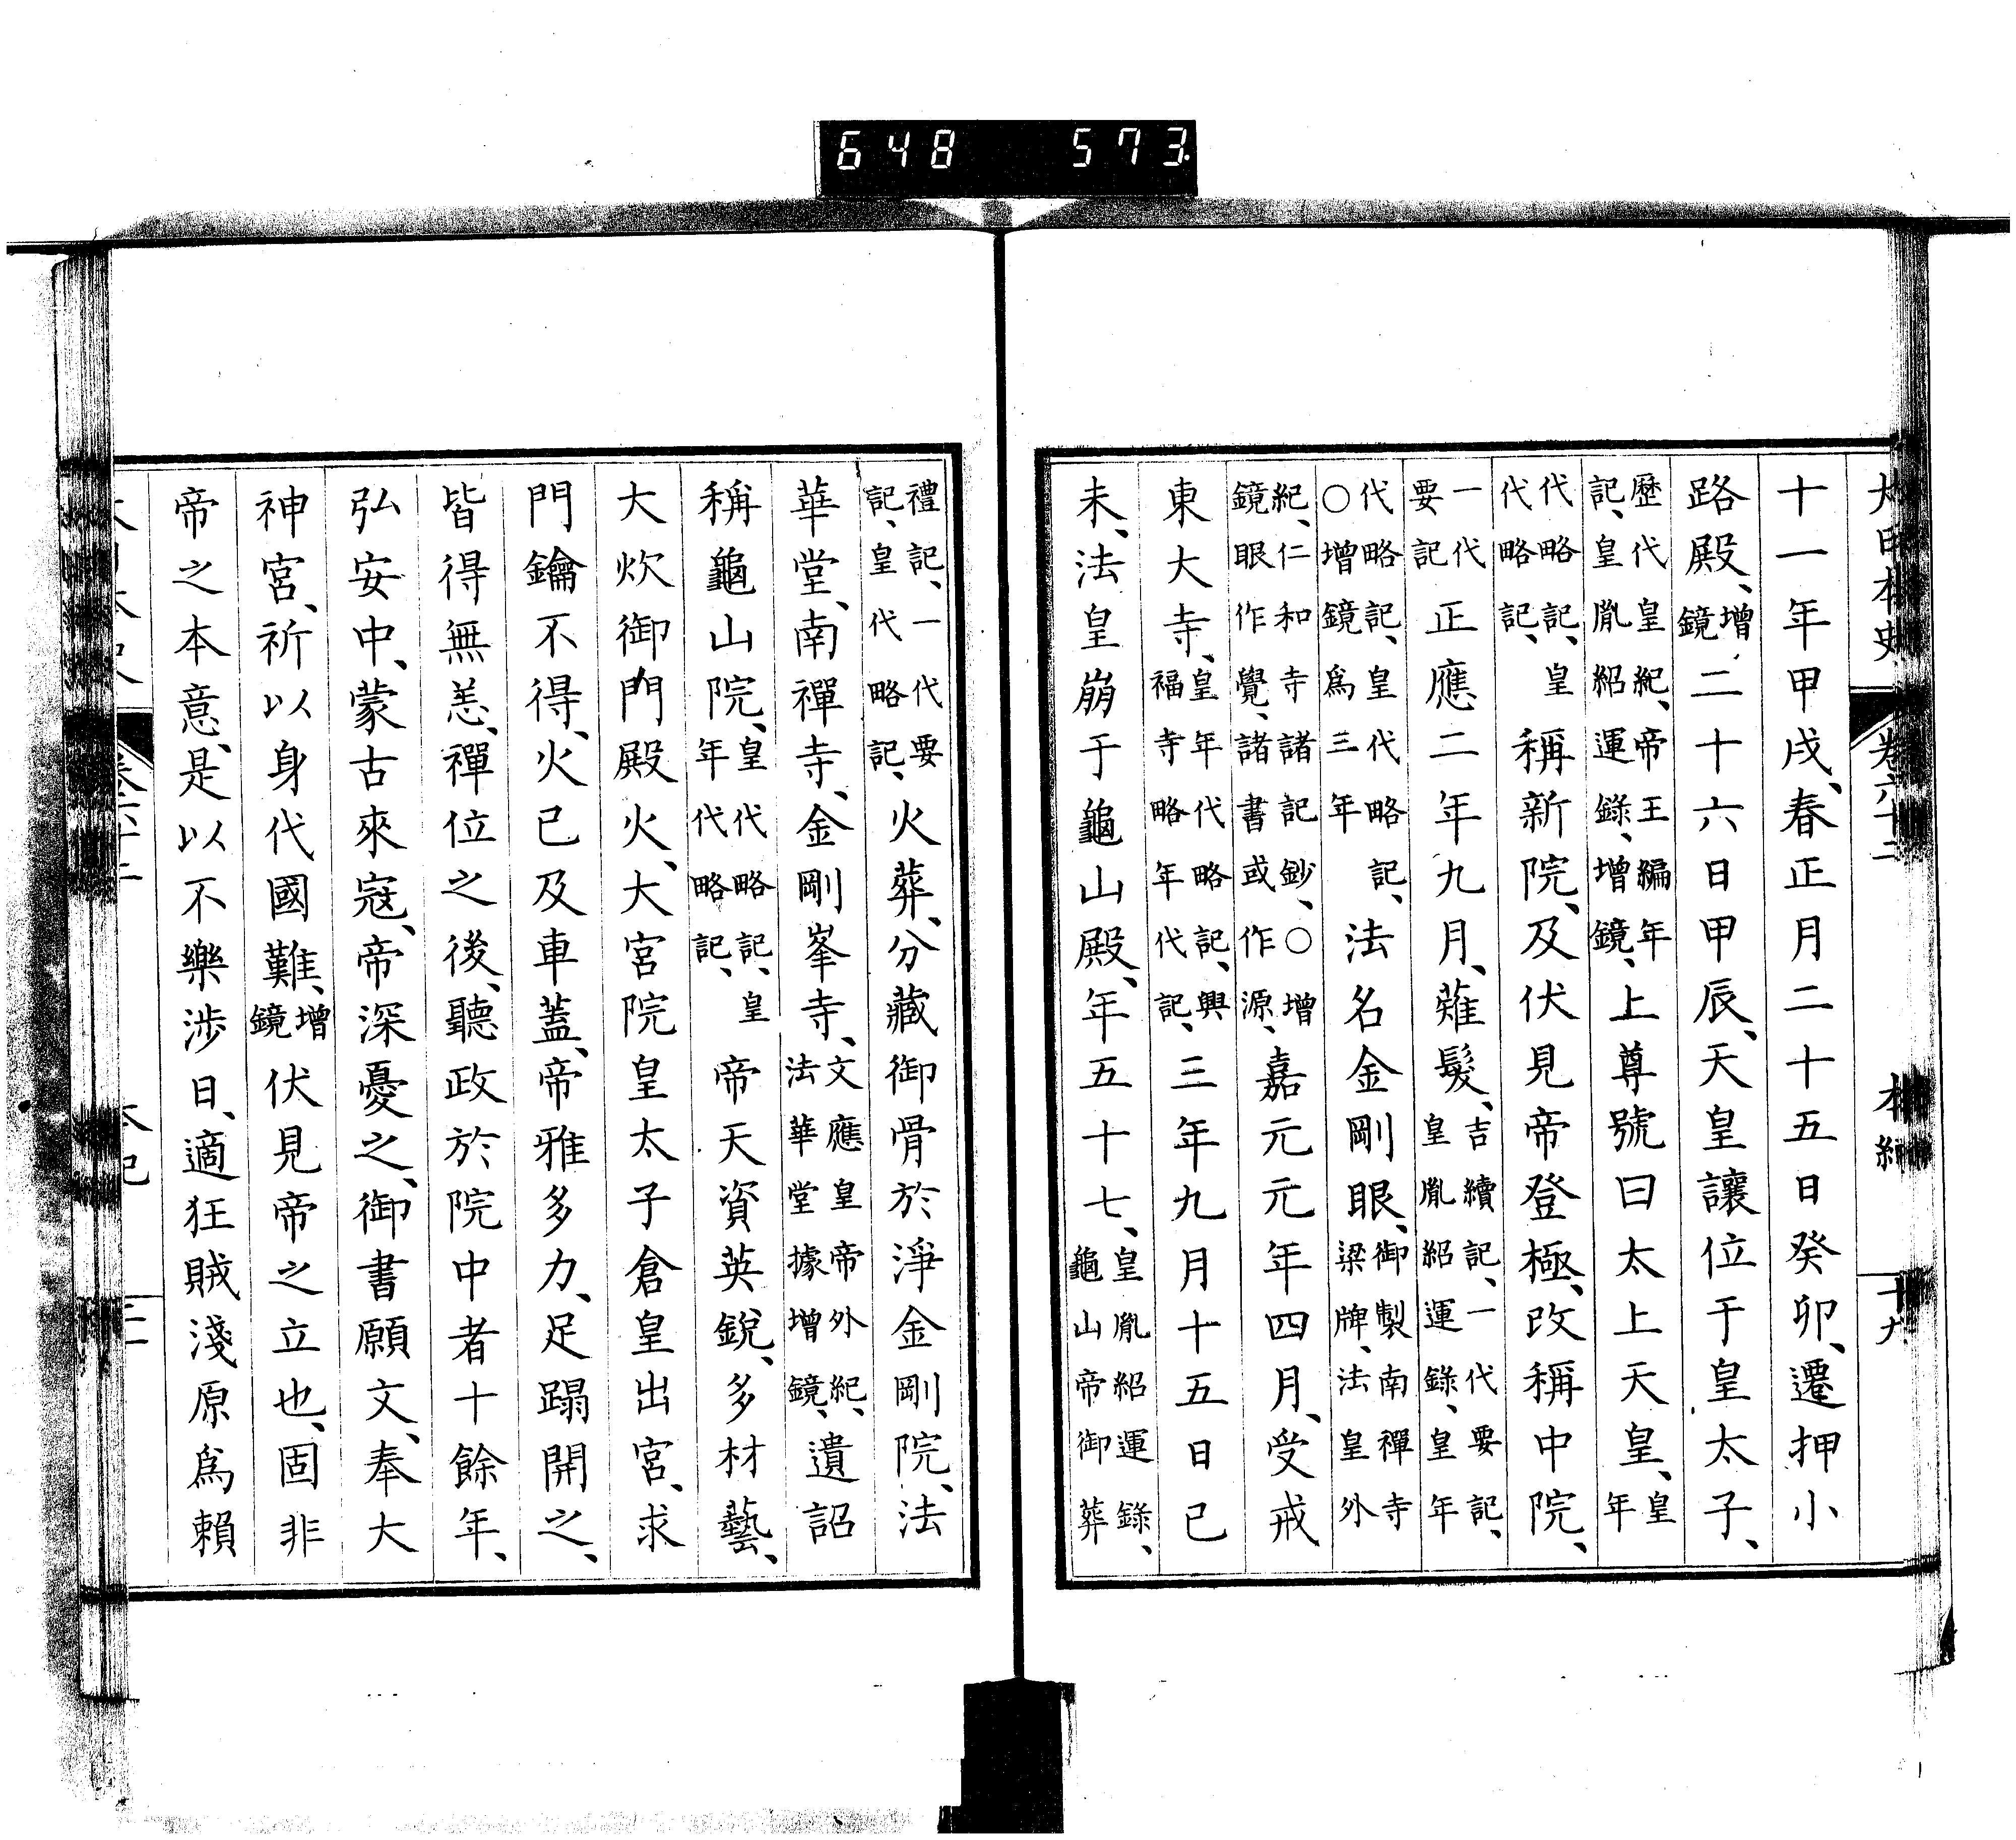 大日本史 卷六十二 本紀 十九
十一年甲戌、春正月二十五日癸卯、遷押小
路殿、增鏡、二十六日甲辰、天皇讓位于皇太子、
歷代皇紀、帝王編年記、皇胤紹運錄、增鏡、上尊號曰太上天皇、皇年
代略記、皇代略記、稱新院、及伏見帝登極、改稱中院、
一代要記正應二年九月、薙髮、吉續記、一代要記、皇胤紹運錄、皇年
代略記、皇代略記、○增鏡爲三年法名金剛眼、御製南禪寺梁牌、法皇外
紀、仁和寺諸記鈔、○增鏡眼作覺、諸書或作源、嘉元元年四月、受戒
東大寺、皇年代略記、興福寺略年代記、三年九月十五日己
未、法皇崩于龜山殿、年五十七、皇胤紹運錄、龜山帝御葬
禮記、一代要記、皇代略記、火葬、分藏御骨於淨金剛院、法
華堂、南禪寺、金剛峯寺、文應皇帝外紀、法華堂據增鏡、遺詔
稱龜山院、皇代略記、皇年代略記、帝天資英銳、多材藝、
大炊御門殿火、大宮院皇太子倉皇出宮、求
門鑰不得、火已及車蓋、帝雅多力、足蹋開之、
皆得無恙、禪位之後、聽政於院中者十餘年、
弘安中、蒙古來寇、帝深憂之、御書願文、奉大
神宮、祈以身代國難、增鏡伏見帝之立也、固非
帝之本意、是以不樂涉日、適狂賊淺原爲賴
648 573